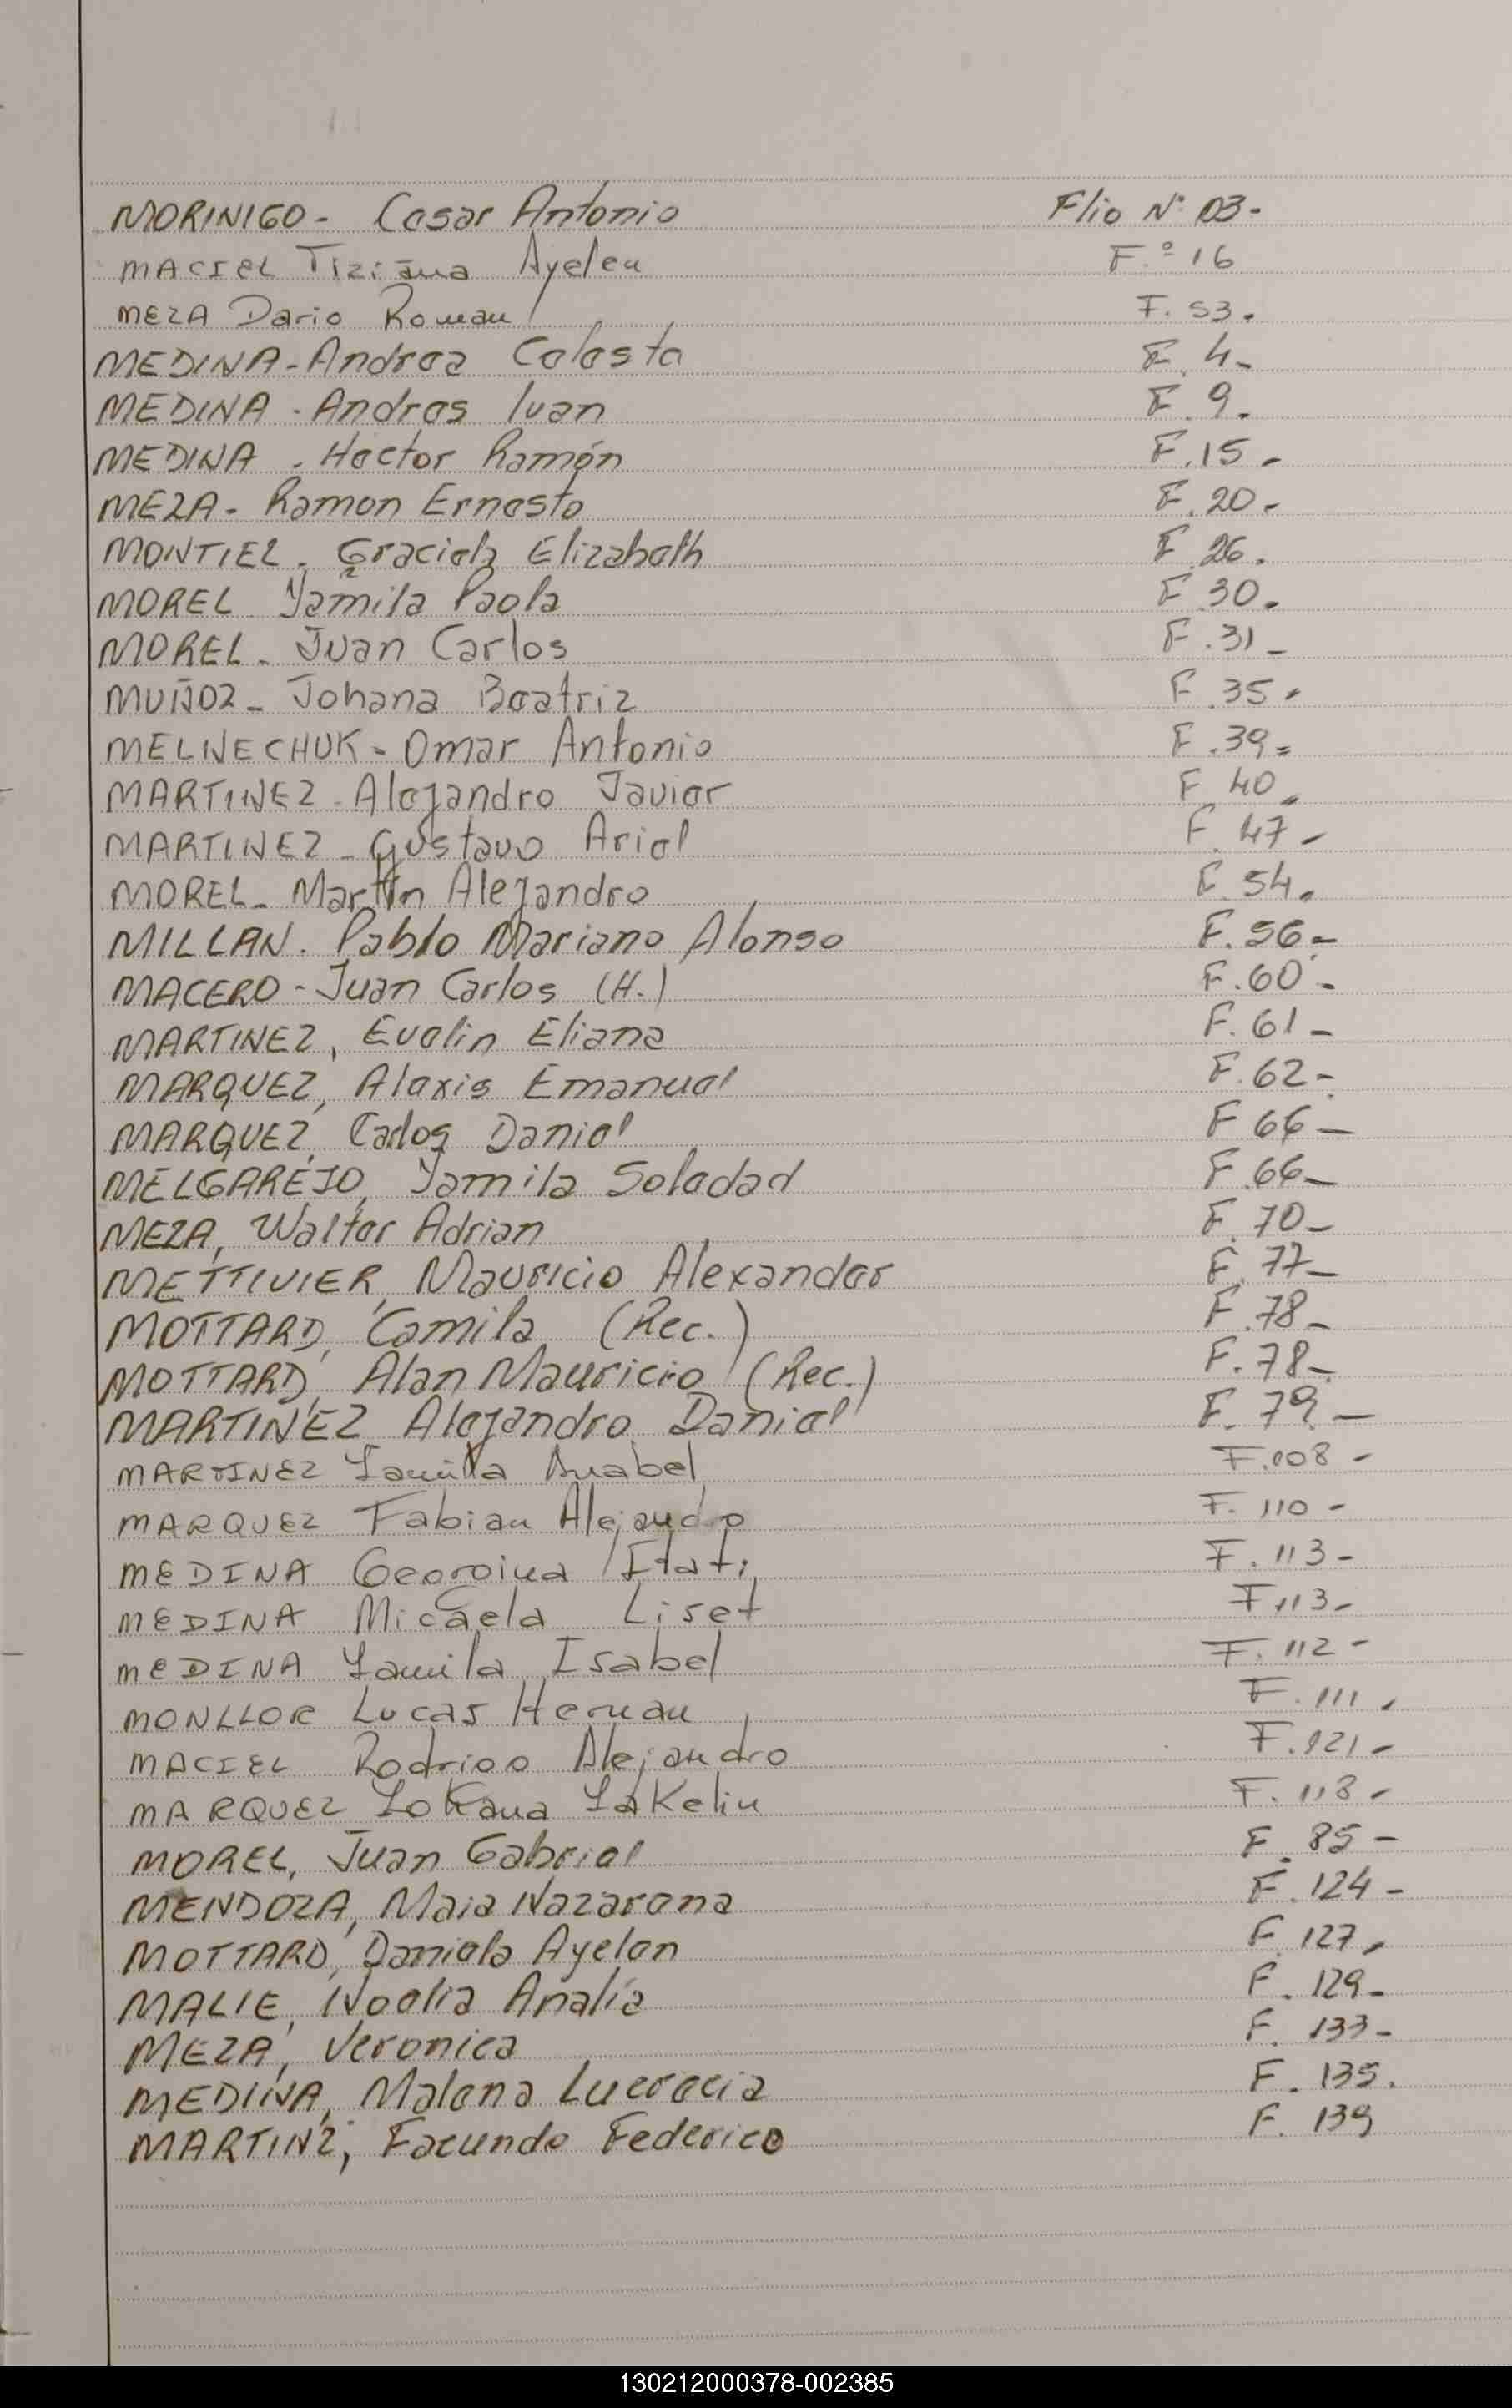 MORINIGO - Cesar Antonio Flio Nº 03 -
MACIEL Tiziana Ayelen F.º 16
MEZA Dario Roman F. 53.
MEDINA - Andrea Celeste F. 4 -
MEDINA - Andres Ivan F. 9.
MEDINA - Hector Ramón F. 15 -
MEZA - Ramon Ernesto F. 20 -
MONTIEL - Graciela Elizabeth F 26.
MOREL Yamila Paola F 30.
MOREL - Juan Carlos F. 31 -
MUÑOZ - Johana Beatriz F. 35 -
MELNECHUK - Omar Antonio F. 39 =
MARTINEZ - Alejandro Javier F 40 -
MARTINEZ - Gustavo Ariel F. 47 -
MOREL - Martin Alejandro F. 54.
MILLAN. Pablo Mariano Alonso F. 56 -
MACERO - Juan Carlos (H.) F. 60 -
MARTINEZ, Evelin Eliana F. 61 -
MARQUEZ, Alexis Emanuel F. 62 -
MARQUEZ, Carlos Daniel F 66 -
MELGAREJO, Yamila Soledad F. 66 -
MEZA, Walter Adrian F. 70 -
METTIVIER, Mauricio Alexander F. 77 -
MOTTARD, Camila (Rec.) F. 78 -
MOTTARD, Alan Mauricio (Rec.) F. 78 -
MARTINEZ Alejandro Daniel F. 79 -
MARTINEZ Yamila Anabel F. 008 -
MARQUEZ Fabian Alejandro F. 110 -
MEDINA Georgina Itati F. 113 -
MEDINA Micaela Liset F 113 -
MEDINA Yamila Isabel F. 112 -
MONLLOR Lucas Hernan F. 111.
MACIEL Rodrigo Alejandro F. 121 -
MARQUEZ Yohana Yakelin F. 118 -
MOREL, Juan Gabriel F. 85 -
MENDOZA, Maia Nazarena F. 124 -
MOTTARD, Daniela Ayelen F. 127 -
MALIE, Noelia Analía F. 129 -
MEZA, Veronica F. 133 -
MEDINA, Malena Lucrecia F. 135.
MARTINZ, Facundo Federico F. 139
130212000378-002385